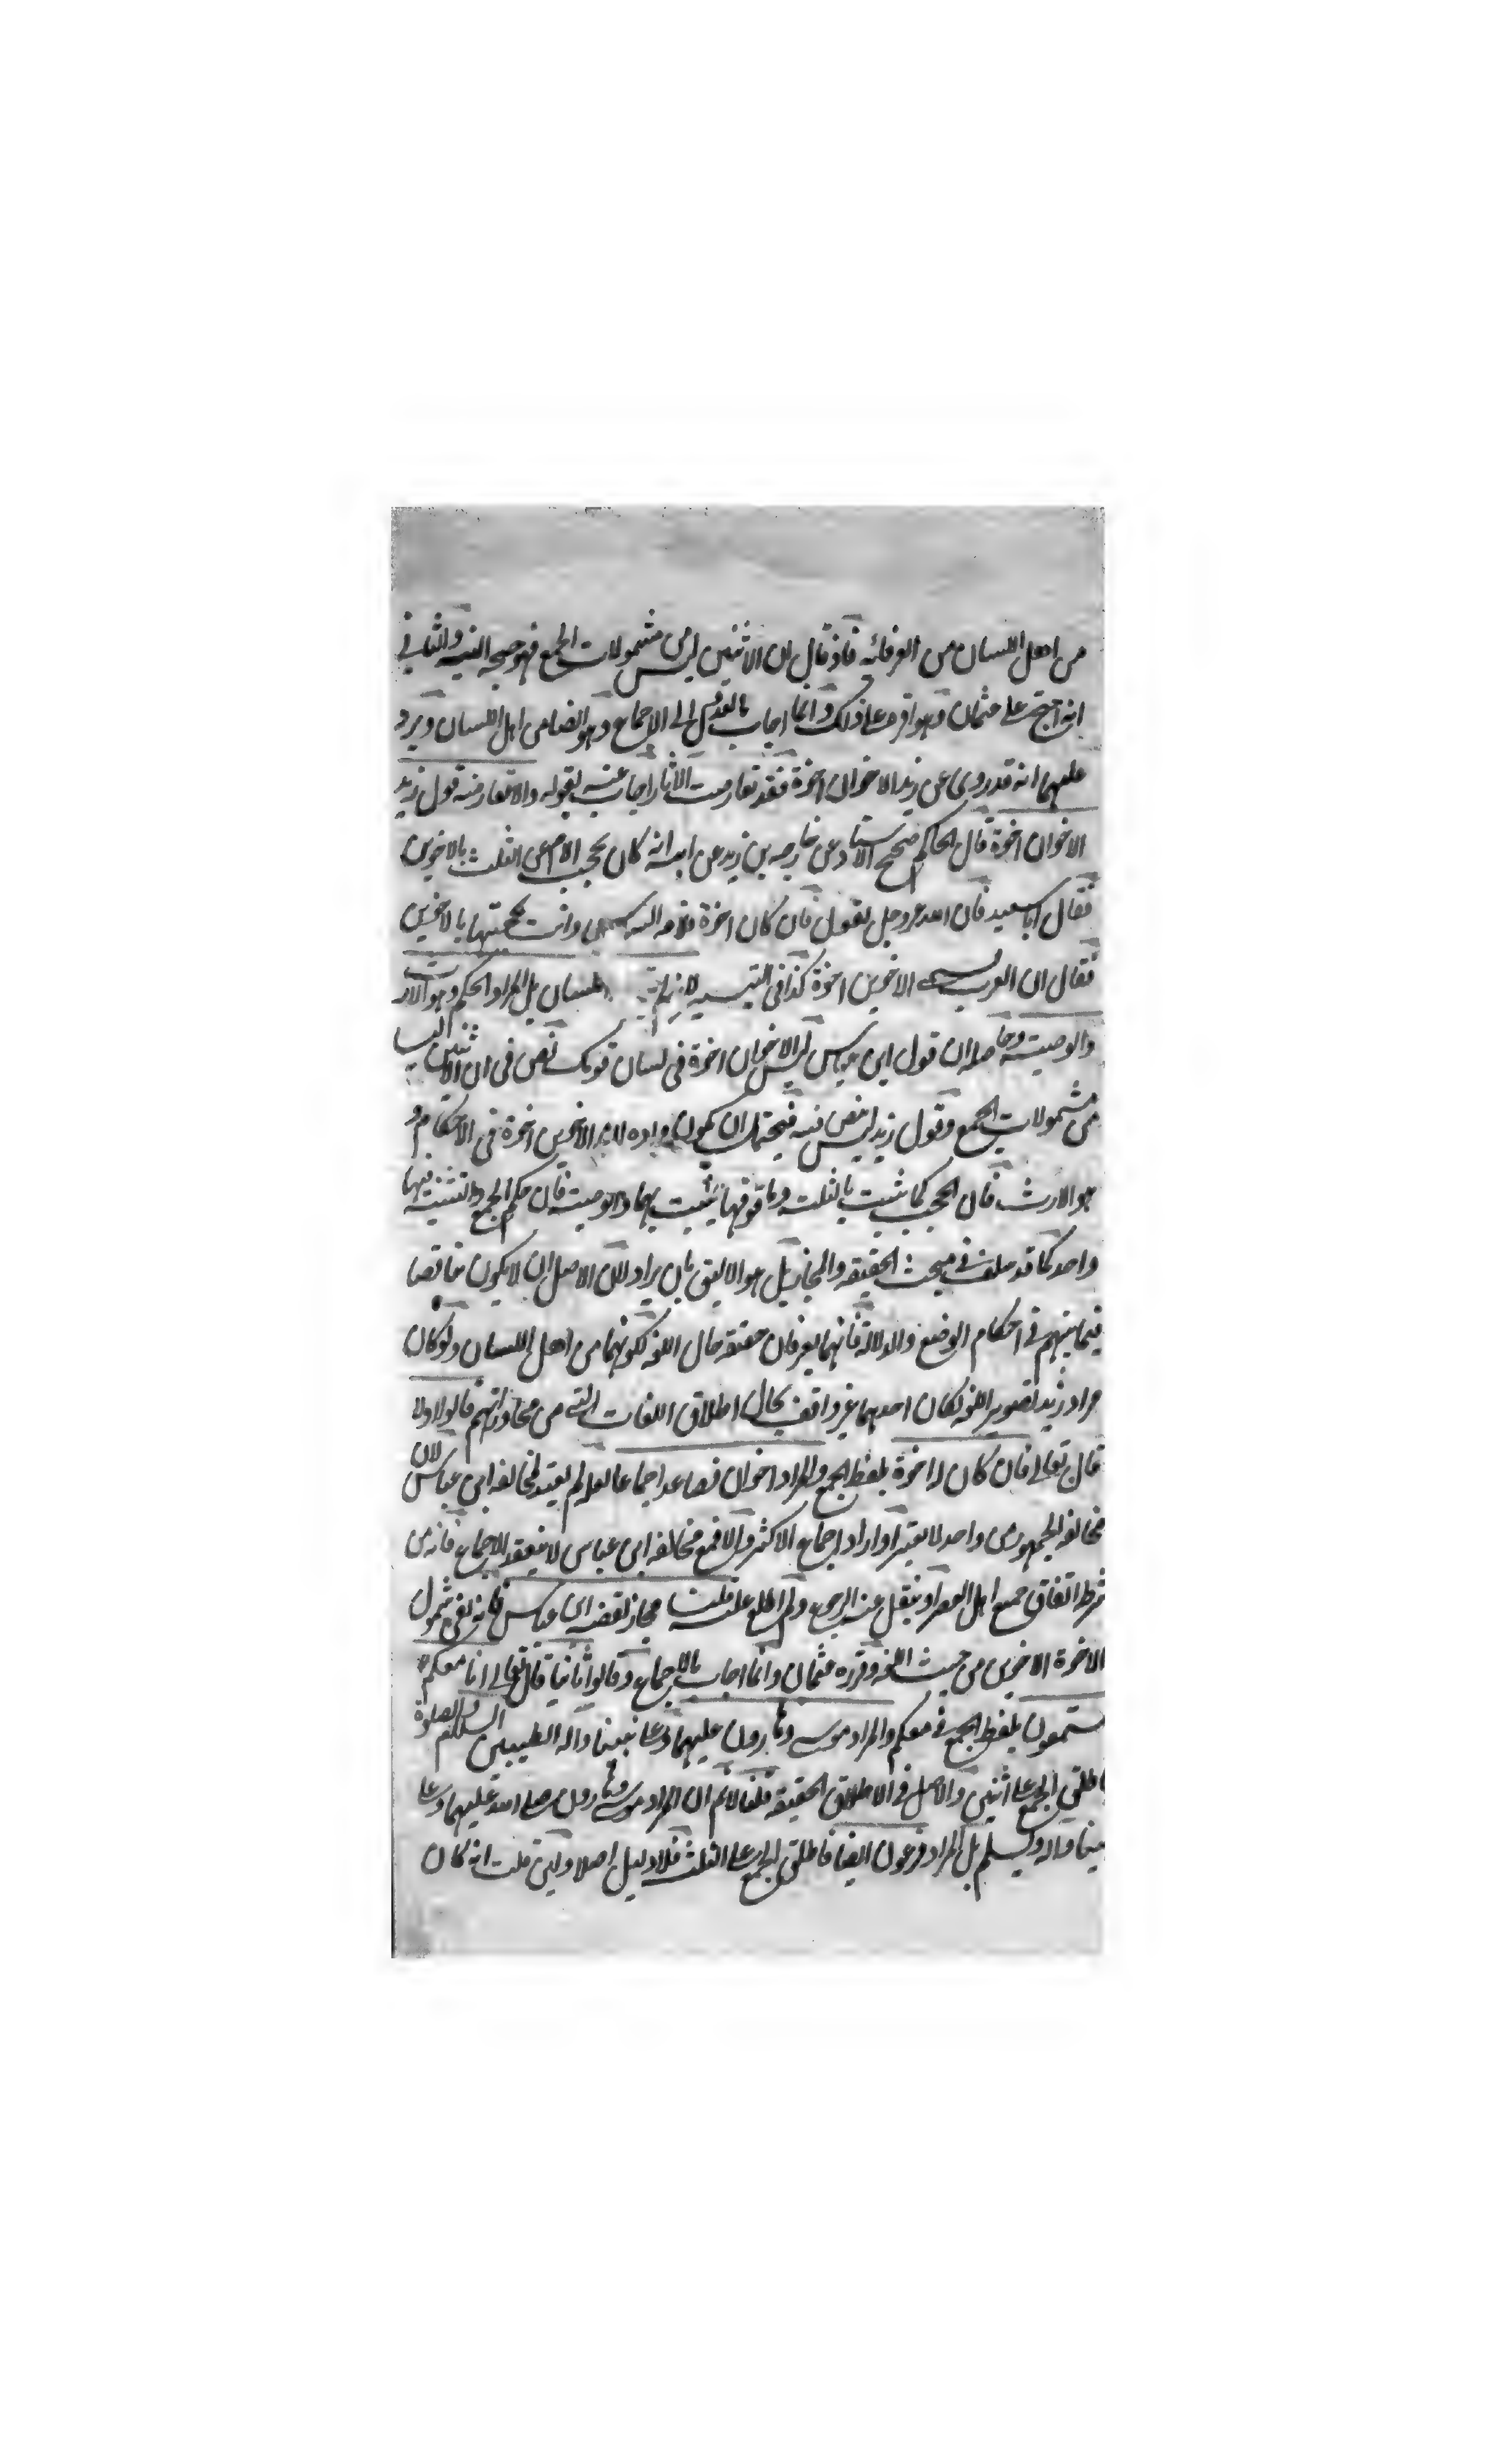 من اهل اللسان من العرفائه فاذ قال ان الاثنين ليس من مشمولات الجمع فهو حجة البتة والثاني
انه احتج على عثمان وهو اقره على ذلك وانما اجاب بالعدول الى الاجماع وهو ايضا من اهل اللسان ويرد
عليهما انه قد روى عن زيد الاخوان اخوة فقد تعارضت الآثار اجاب عنه بقوله والا تعارضه قول زيد
الاخوان اخوة قال الحاكم صحيح الاسناد عن خارجه بن زيد عن ابيه انه كان يحجب الام عن الثلث بالاخوين
فقال ابا سعيد فان الله عز وجل يقول فان كان له اخوة فلامه السدس وانت تحجبها بالاخوين
فقال ان العرب تسمى الاخوين اخوة كذا في التيسير لانه اللسان بل المراد الحكم وهو الارث
والوصية وحاصله ان قول ابن عباس ليس الاخوان اخوة في لسان قومك نص في ان الاثنين ليسا
من مشمولات الجمع وقول زيد ليس نص فيه فيحتمل ان يكون مراده ان الاخوين اخوة في الاحكام و
هو الارث فان الحجب كما يثبت بالثلث وما فوقها يثبت بهما والوصية فان حكم الجمع والتثنية فيها
واحد كما قد سلف في مبحث الحقيقة والمجاز بل هو الاليق بان يراد لان الاصل ان لا يكون مناقضا
فيما بينهم في احكام الوضع والدلالة فانهما يعرفان حقيقة حال اللغة لكونهما من اهل اللسان ولو كان
مراد زيد تصوير اللغة لكان احدهما غير واقف بحال اطلاق اللغات التي من محاوراتهم قالوا اولا
قال تعالى فان كان له اخوة بلفظ الجمع والمراد اخوان فصاعدا اجماعا لعله لم يعتد لمخالفة ابن عباس لان
مخالفة الجمهور من واحد لا يعتبر او اراد اجماع الاكثر والا فمع مخالفة ابن عباس لا ينعقد الاجماع فانه من
شرط اتفاق جميع اهل العصر او ينقل عنه الرجوع ولم اطلع عليه قلت مجاز لقصة ابن عباس فانه نفى شمول
الاخوة الاخوين من حيث اللغة وقرره عثمان وانما اجاب بالاجماع وقالوا ثانيا قال تعالى انا معكم
مستمعون بلفظ الجمع في معكم والمراد موسى وهارون عليهما وعلى نبينا وآله الطيبين الصلوة والسلام
اطلق الجمع على اثنين والاصل في الاطلاق الحقيقة قلنا لا نم ان المراد موسى وهارون صلى الله عليهما وعلى
نبينا وآله وسلم بل المراد فرعون ايضا فاطلق الجمع على الثلث فلا دليل اصلا ولئن قلت انه كان